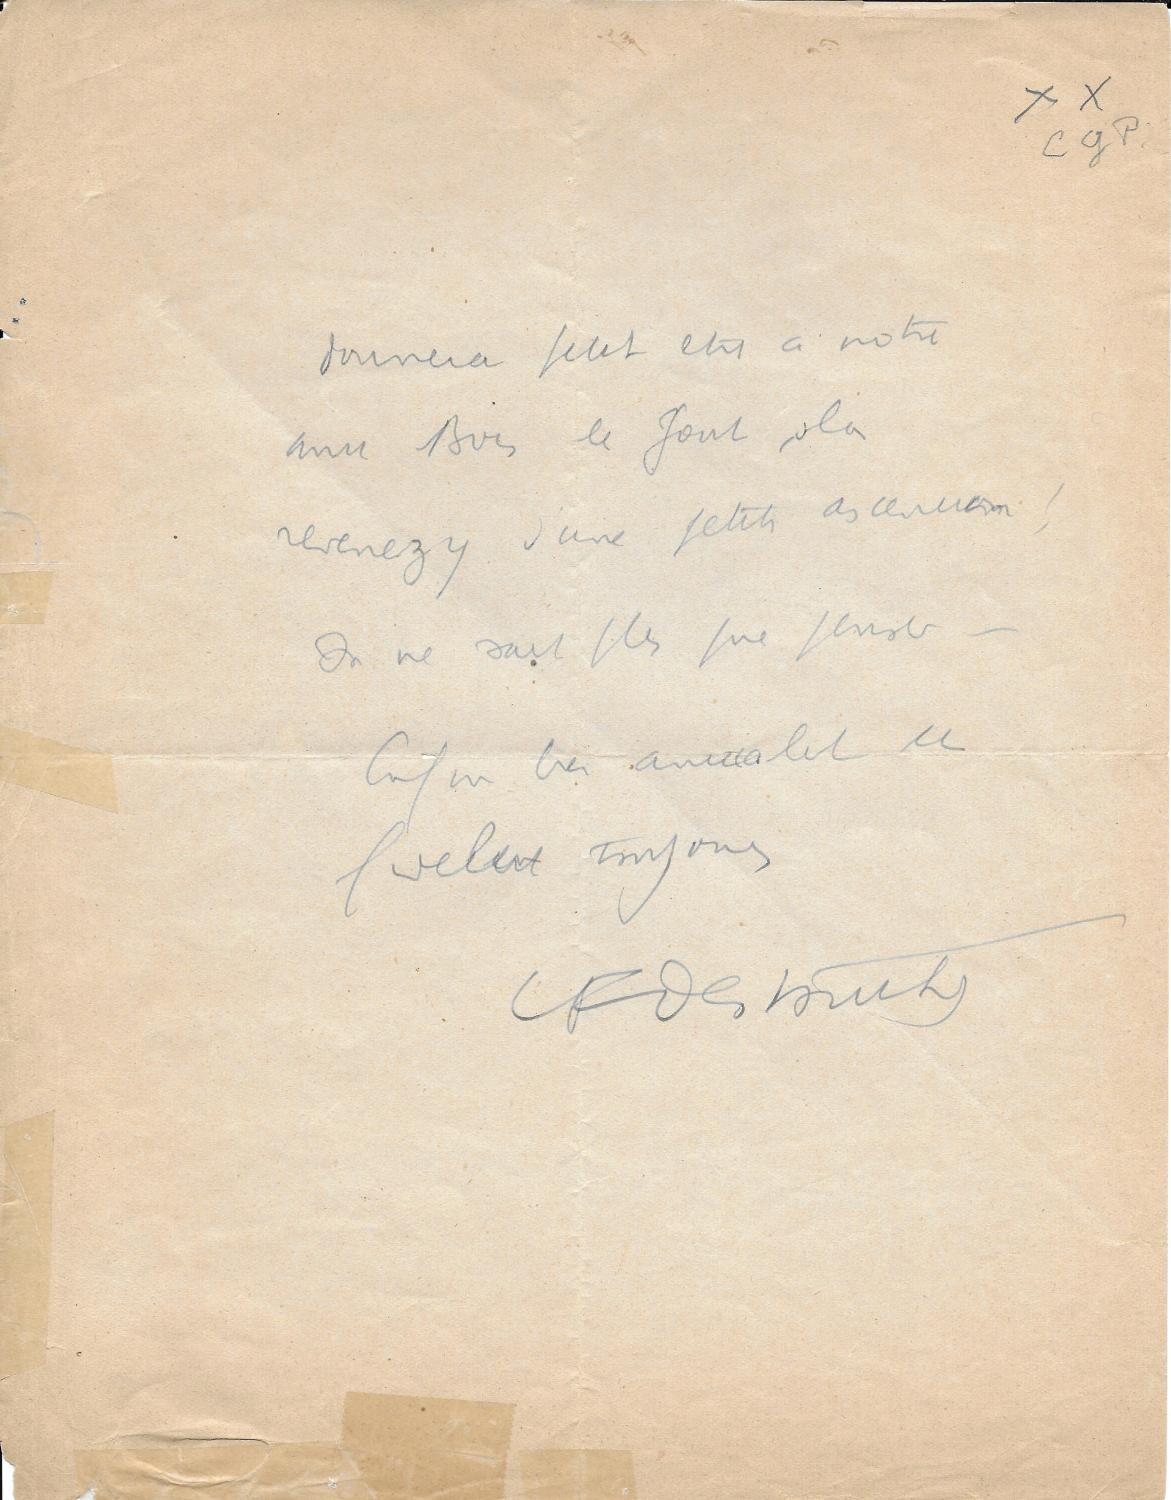 x X
C g P.
donnera peut etre a notre
ami Bois le Jout
revenez y d'une petite ascension !
On ne sait plus que penser —
Enfin tres amicalet et
fidelemt toujours